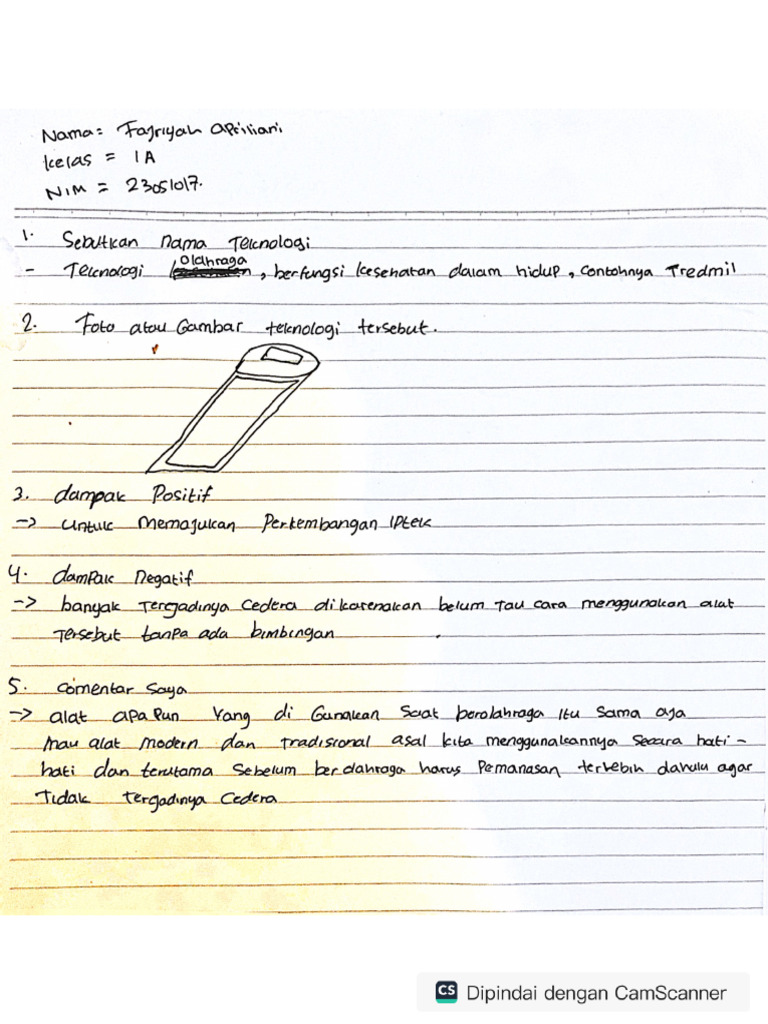 Nama = Fajriyah Apriliani
Kelas = 1A
NIM = 23051017.
1. Sebutkan nama Teknologi
- Teknologi Olahraga, berfungsi kesehatan dalam hidup, contohnya Tredmil
2. Foto atau Gambar teknologi tersebut.
3. dampak Positif
-> untuk memajukan Perkembangan Iptek
4. dampak Negatif
-> banyak Terjadinya Cedera dikarenakan belum Tau cara menggunakan alat
Tersebut tanpa ada bimbingan
5. Comentar Saya
-> alat apa pun yang di Gunakan Saat berolahraga itu sama aja
mau alat modern dan tradisional asal kita menggunakannya secara hati-
hati dan terutama Sebelum berolahraga harus Pemanasan terlebih dahulu agar
Tidak Terjadinya Cedera
CS Dipindai dengan CamScanner